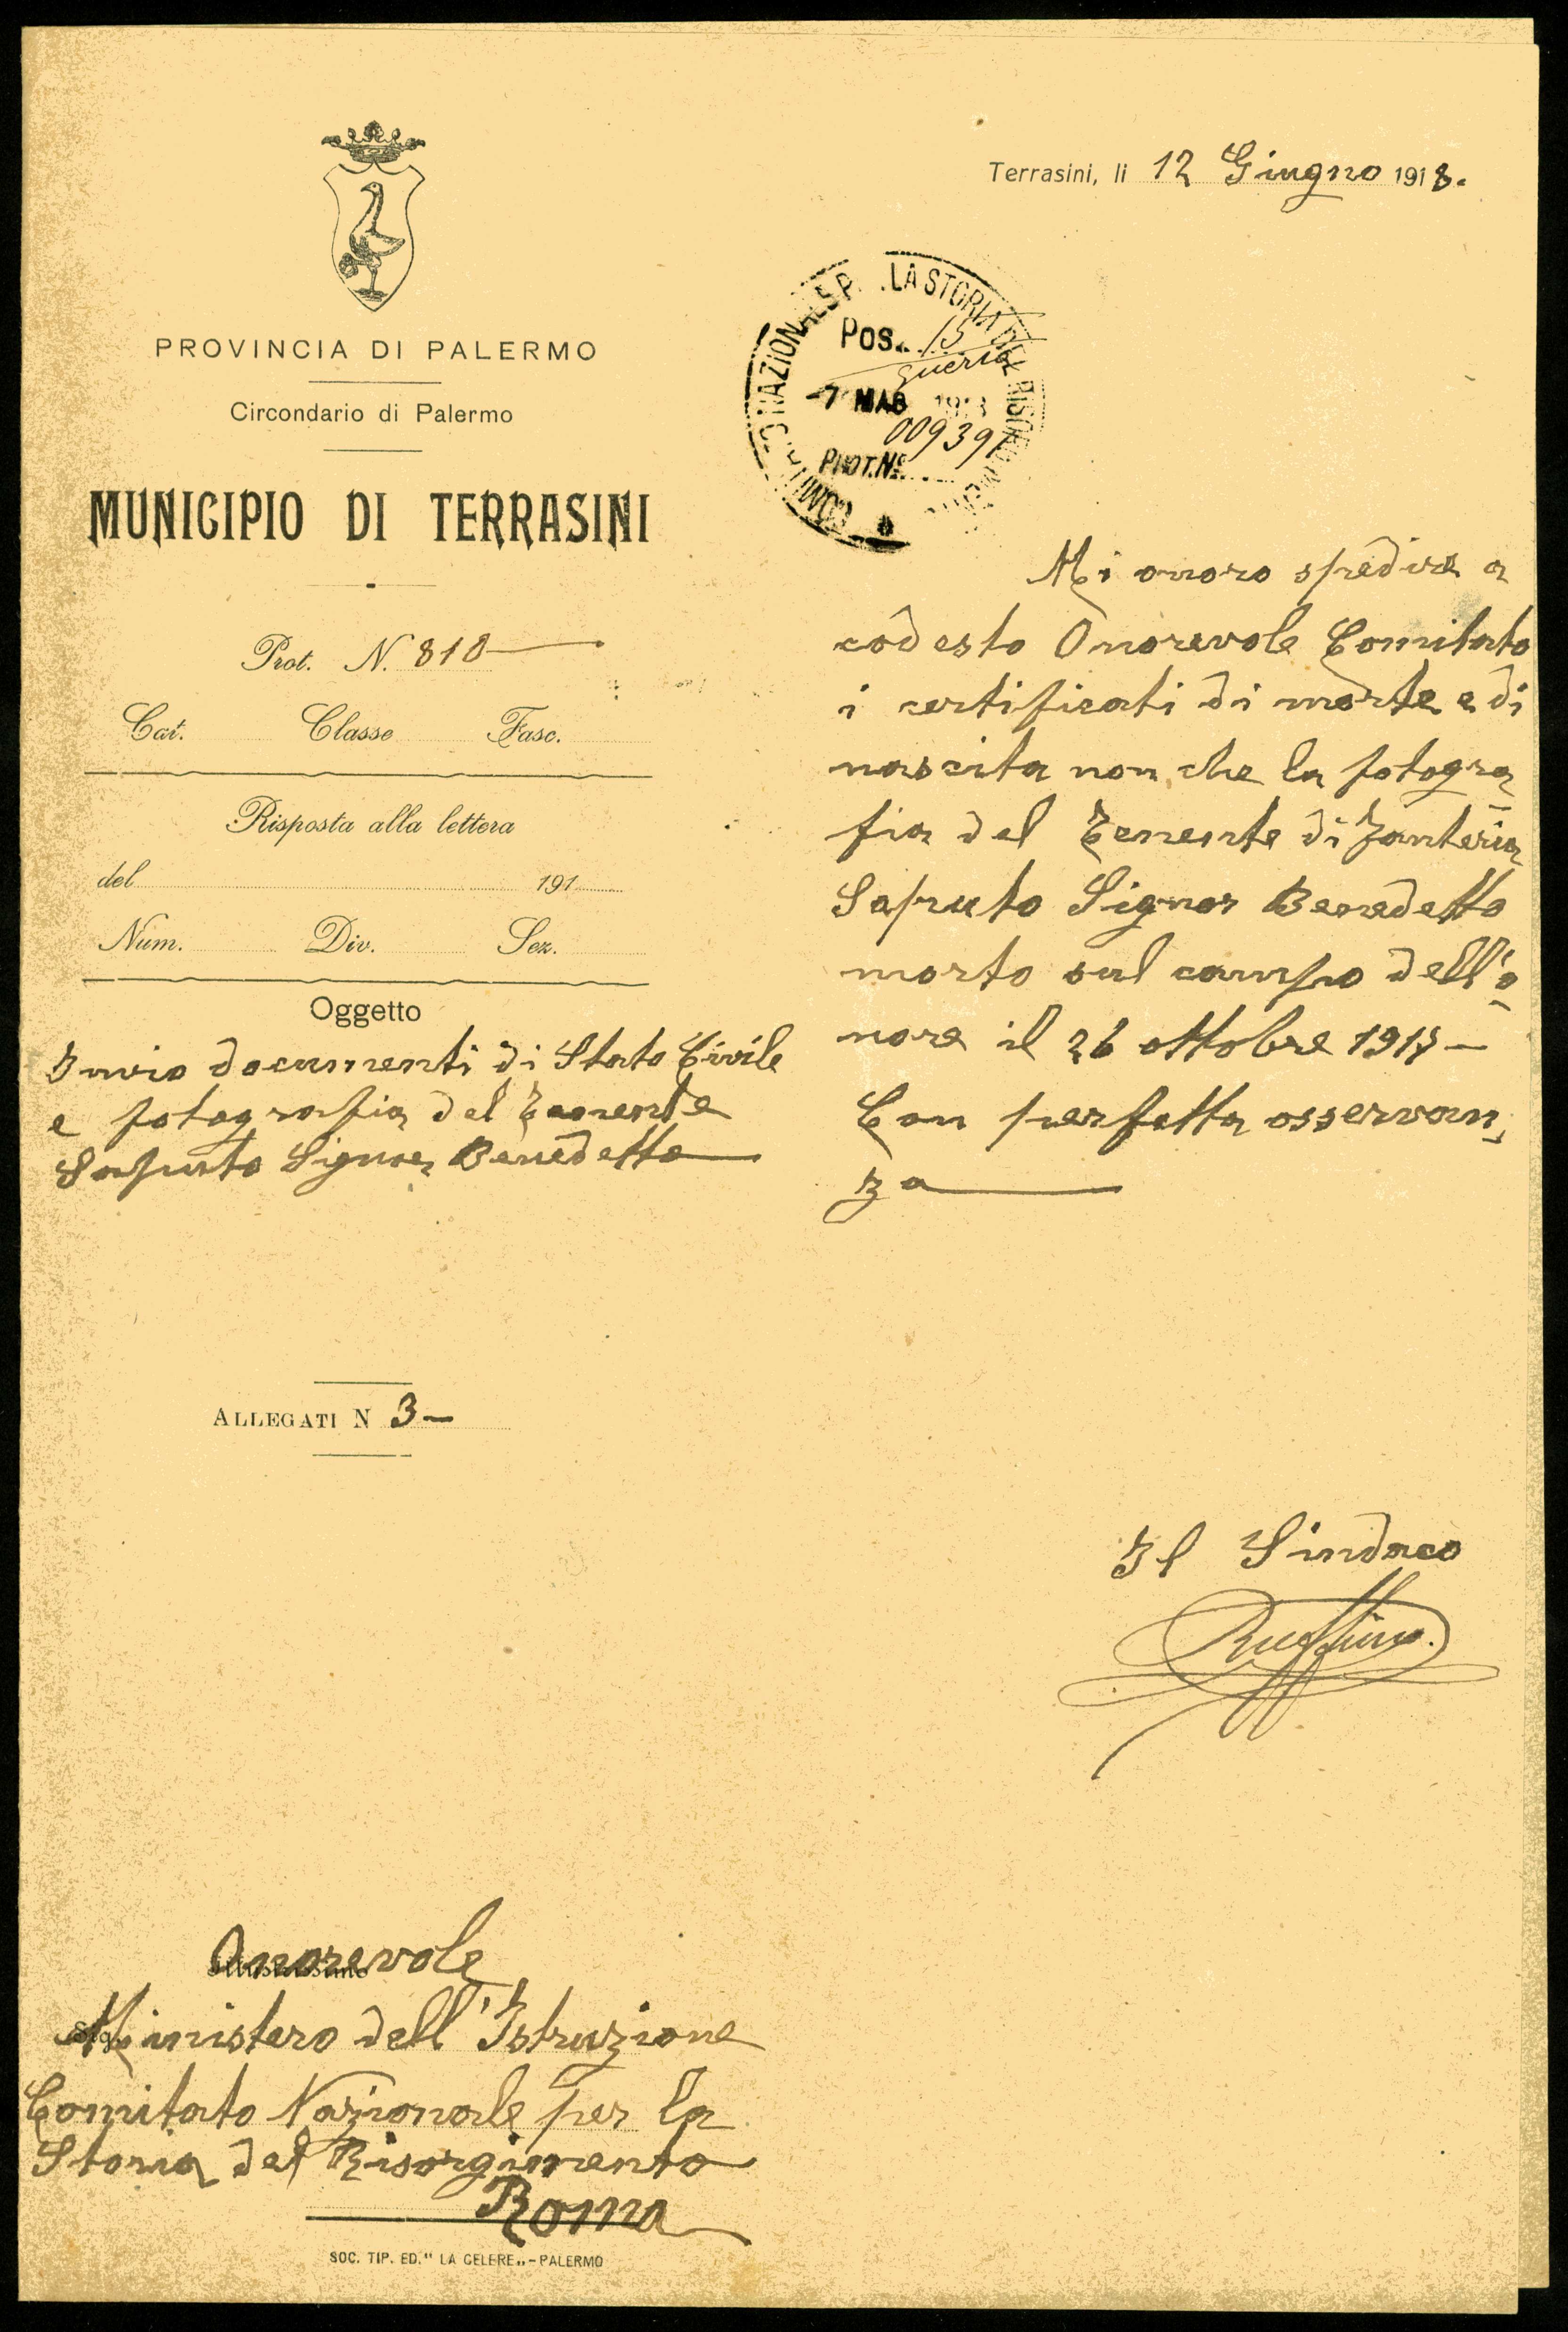 PROVINCIA DI PALERMO
Circondario di Palermo
MUNICIPIO DI TERRASINI
Prot. N. 818
Cat. Classe Fasc.
Risposta alla lettera
del 191
Num. Div. Sez.
Oggetto
Invio documenti di Stato Civile
e fotografia del Tenente
Saputo Signor Benedetto
ALLEGATI N 3
Onorevole
Ministero dell'Istruzione
Comitato Nazionale per la
Storia del Risorgimento
Roma
SOC. TIP. ED. " LA CELERE „ - PALERMO
Terrasini, li 12 Giugno 1918.
LA STORIA DEL
Pos. 15
guerra
-7 MAG
009391
PROT. No.
Mi onoro spedire a
codesto Onorevole Comitato
i certificati di morte e di
nascita non che la fotogra
fia del Tenente di Fanteria
Saputo Signor Benedetto
morto sul campo dell'o
nore il 26 ottobre 1917 –
Con perfetta osservan
za
Il Sindaco
Ruffino.